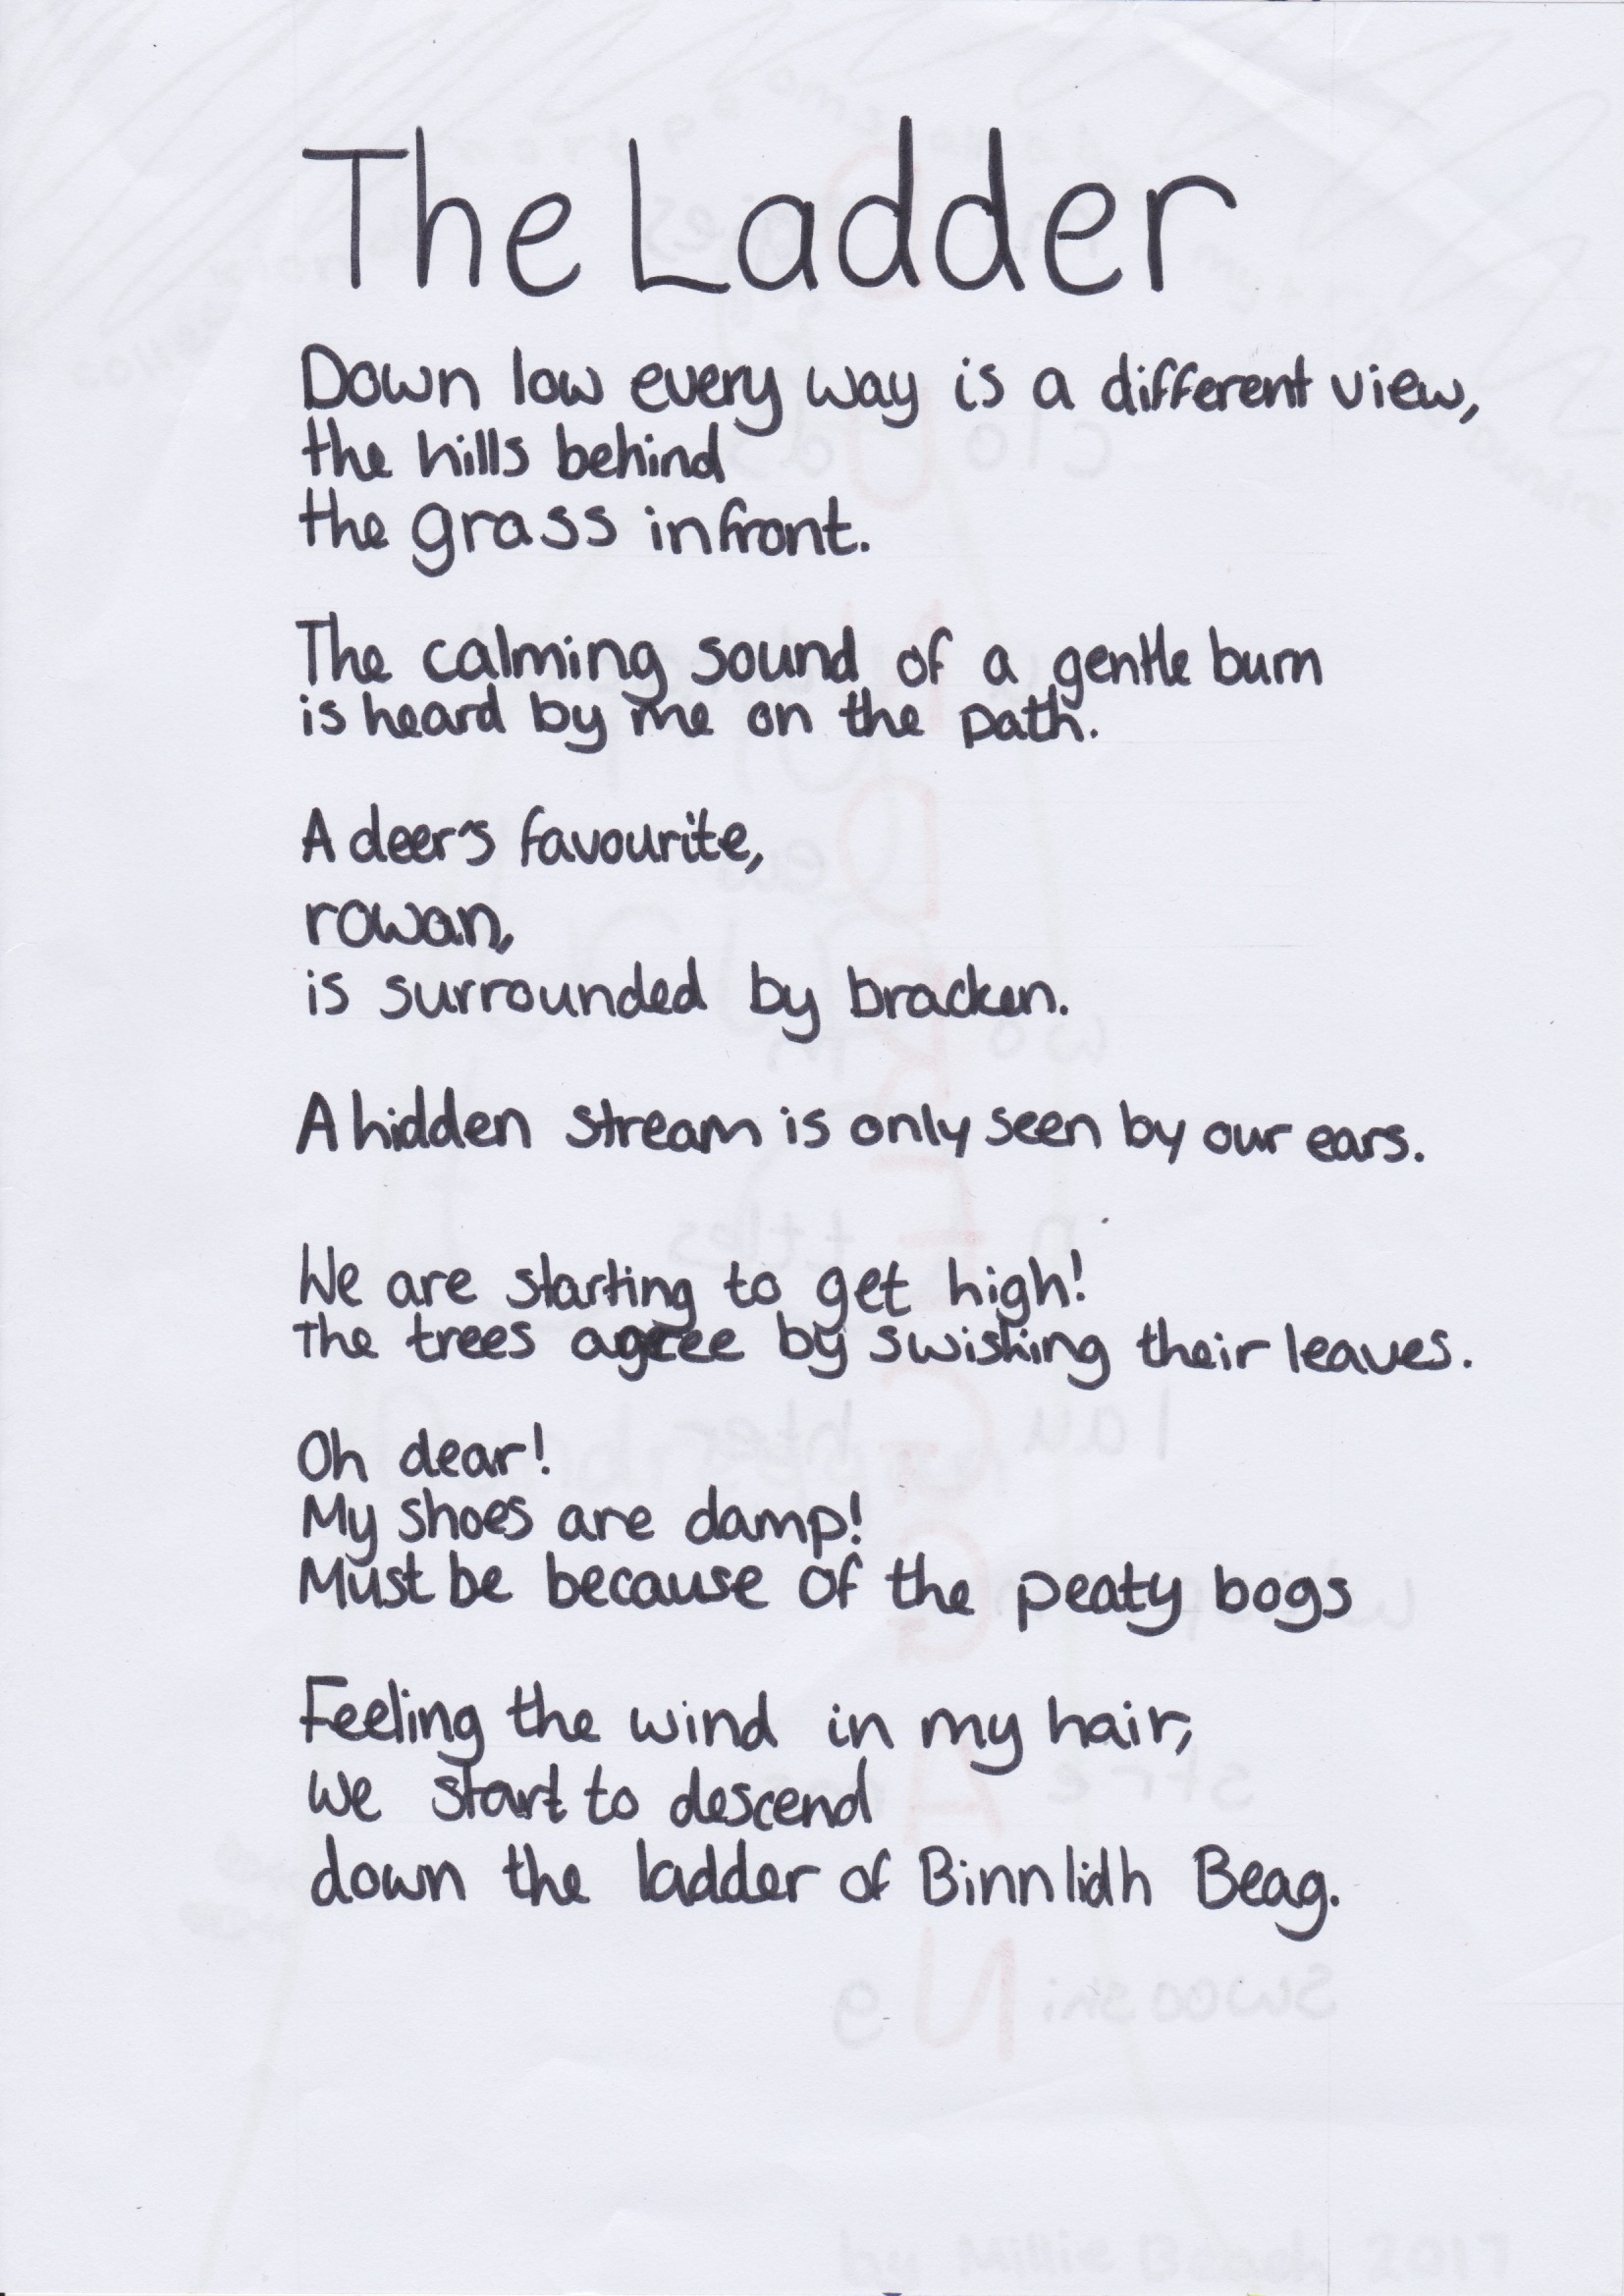 The Ladder
Down low every way is a different view,
the hills behind
the grass infront.
The calming sound of a gentle burn
is heard by me on the path.
A deer's favourite,
rowan,
is surrounded by bracken.
A hidden stream is only seen by our ears.
We are starting to get high!
The trees agree by swishing their leaves.
Oh dear!
My shoes are damp!
Must be because of the peaty bogs
Feeling the wind in my hair,
we start to descend
down the ladder of Binnlidh Beag.
by Millie Beach 2017